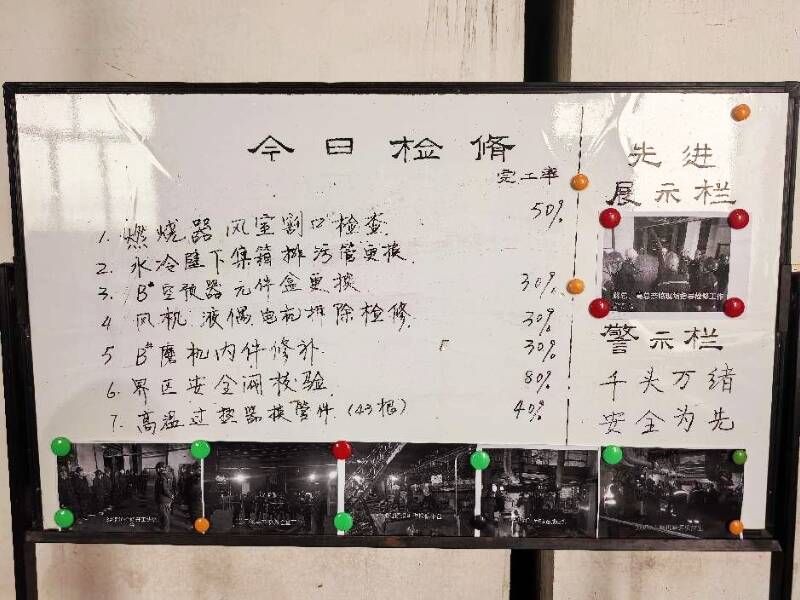 今日检修
完工率
1. 燃烧器风室割口检查 50%
2. 水冷壁下集箱排污管更换
3. B#空预器元件盒更换 30%
4 风机液偶电机拆除检修 30%
5 B#磨机内件修补 30%
6. 界区安全阀校验 80%
7. 高温过热器换管件(43根) 40%
先进
展示栏
警示栏
千头万绪
安全为先